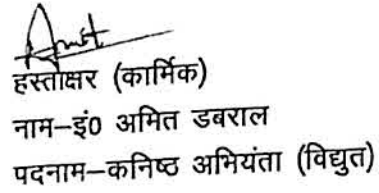 Amit
हस्ताक्षर (कार्मिक)
नाम–इं0 अमित डबराल
पदनाम–कनिष्ठ अभियंता (विद्युत)